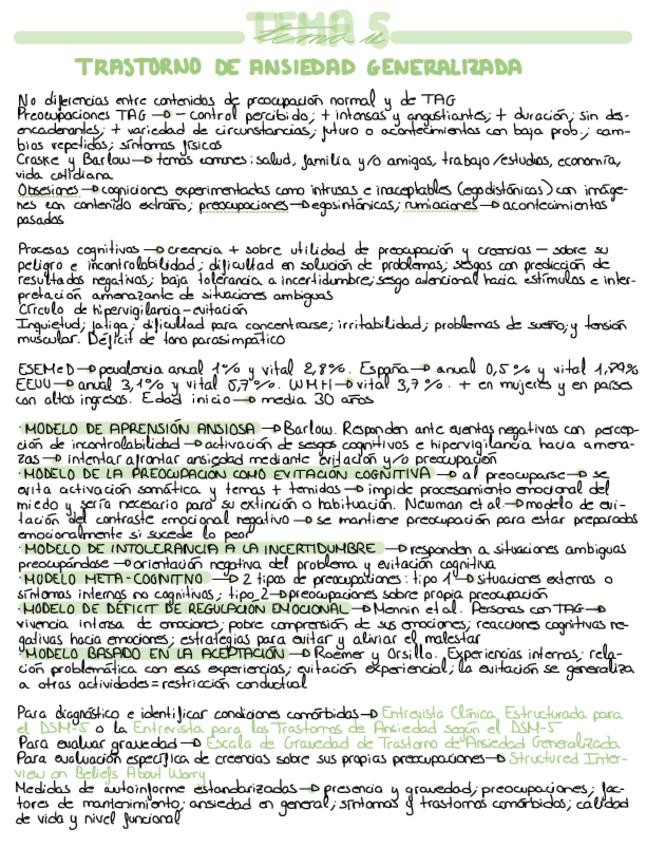 TEMA 5
TRASTORNO DE ANSIEDAD GENERALIZADA
No diferencias entre contenidos de preocupación normal y de TAG
Preocupaciones TAG → - control percibido; + intensas y angustiantes; + duración; sin des-
encadenantes; + variedad de circunstancias; futuro o acontecimientos con baja prob.; cam-
bios repetidos; síntomas físicos
Craske y Barlow → temas comunes: salud, familia y/o amigos, trabajo/estudios, economía,
vida cotidiana
Obsesiones → cogniciones experimentadas como intrusas e inaceptables (egodistónicas) con imáge-
nes con contenido extraño; preocupaciones → egosintónicas; rumiaciones → acontecimientos
pasados
Procesos cognitivos → creencia + sobre utilidad de preocupación y creencias - sobre su
peligro e incontrolabilidad; dificultad en solución de problemas; sesgos con predicción de
resultados negativos; baja tolerancia a incertidumbre; sesgo atencional hacia estímulos e inter-
pretación amenazante de situaciones ambiguas
Círculo de hipervigilancia-evitación
Inquietud; fatiga; dificultad para concentrarse; irritabilidad; problemas de sueño; y tensión
muscular. Déficit de tono parasimpático
ESEMeD → prevalencia anual 1% y vital 2,8%. España → anual 0,5% y vital 1,89%
EEUU → anual 3,1% y vital 5,7%. WMHI → vital 3,7%. + en mujeres y en países
con altos ingresos. Edad inicio → media 30 años
· MODELO DE APRENSIÓN ANSIOSA → Barlow. Responden ante eventos negativos con percep-
ción de incontrolabilidad → activación de sesgos cognitivos e hipervigilancia hacia amena-
zas → intentar afrontar ansiedad mediante evitación y/o preocupación
· MODELO DE LA PREOCUPACIÓN COMO EVITACIÓN COGNITIVA → al preocuparse → se
evita activación somática y temas + temidos → impide procesamiento emocional del
miedo y sería necesario para su extinción o habituación. Newman et al. → modelo de evi-
tación del contraste emocional negativo → se mantiene preocupación para estar preparados
emocionalmente si sucede lo peor
· MODELO DE INTOLERANCIA A LA INCERTIDUMBRE → responden a situaciones ambiguas
preocupándose → orientación negativa del problema y evitación cognitiva
· MODELO META-COGNITIVO → 2 tipos de preocupaciones: tipo 1 → situaciones externas o
síntomas internos no cognitivos; tipo 2 → preocupaciones sobre propia preocupación
· MODELO DE DÉFICIT DE REGULACIÓN EMOCIONAL → Mennin et al. Personas con TAG →
vivencia intensa de emociones; pobre comprensión de sus emociones; reacciones cognitivas ne-
gativas hacia emociones; estrategias para evitar y aliviar el malestar
· MODELO BASADO EN LA ACEPTACIÓN → Roemer y Orsillo. Experiencias internas; rela-
ción problemática con esas experiencias; evitación experiencial; la evitación se generaliza
a otras actividades = restricción conductual
Para diagnóstico e identificar condiciones comórbidas → Entrevista Clínica Estructurada para
el DSM-5 o la Entrevista para los Trastornos de Ansiedad según el DSM-5
Para evaluar gravedad → Escala de Gravedad de Trastorno de Ansiedad Generalizada
Para evaluación específica de creencias sobre sus propias preocupaciones → Structured Inter-
view on Beliefs About Worry
Medidas de autoinforme estandarizadas → presencia y gravedad; preocupaciones; fac-
tores de mantenimiento; ansiedad en general; síntomas y trastornos comórbidos; calidad
de vida y nivel funcional